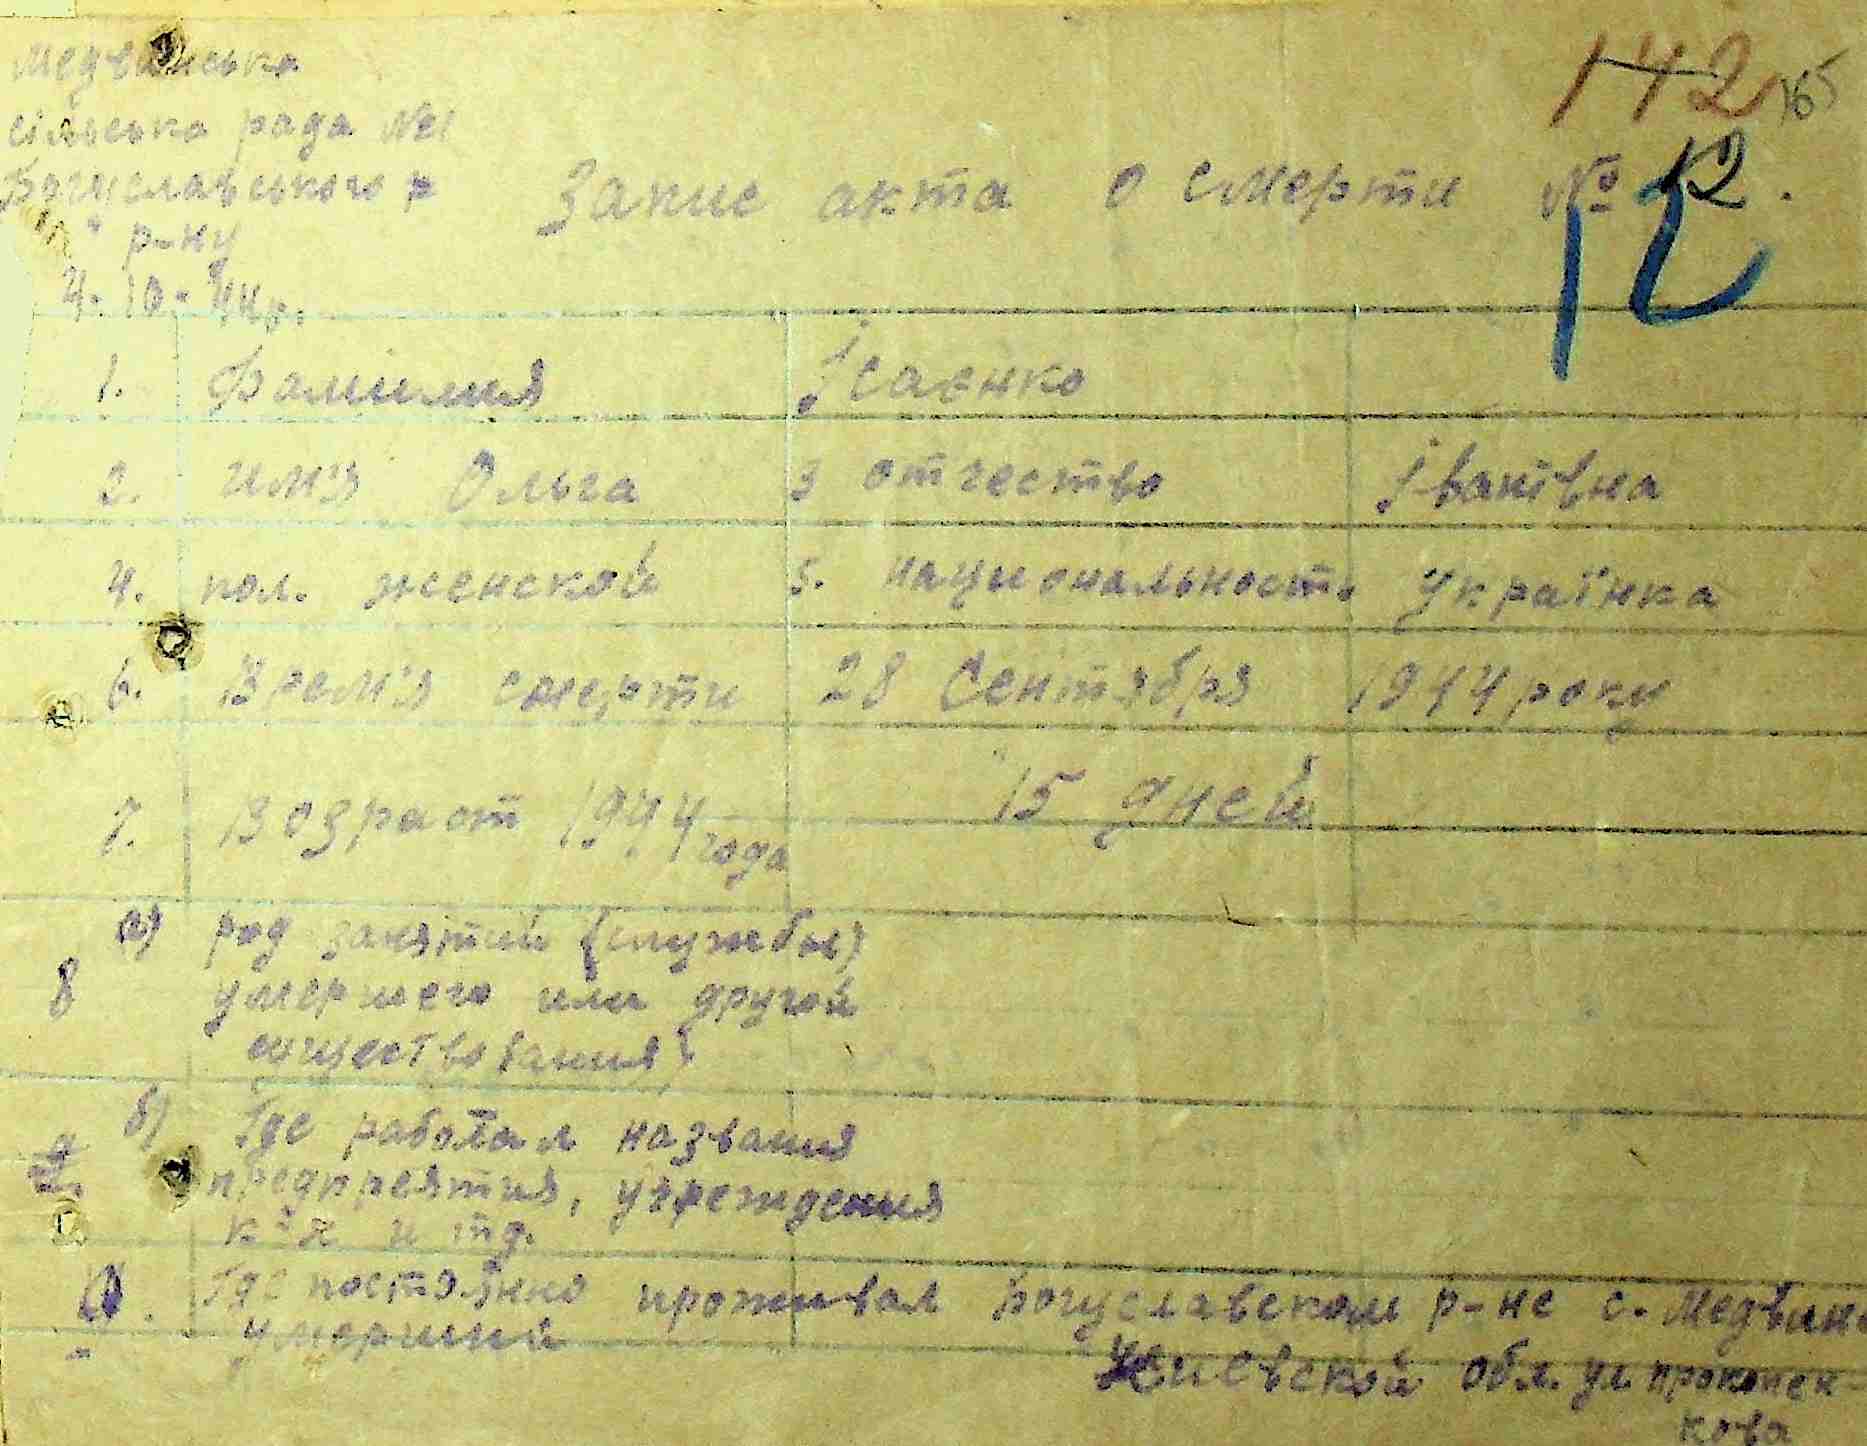 Медвинська
142 165
сільська рада №1
Богуславського р
" " р-ну
Запис акта о смерти № 12.
12
4.10.44р.
1. Фамилия Ісаєнко
2. имʼя Ольга 3 отчество Іванівна
4. пол. женской 5. национальность Українка
6. Времʼя смерти 28 Сентября 1944 року
7. Возраст 1944 года 15 дней
а) род занятий (службы)
8 умершего или другой
существования)
б) Где работал названия
9. предпреятия, учреждения
к-з и тд.
Где постоянно проживал Богуславском р-не с. Медвин
умерший
Киевской обл. ул прокопен-
кова